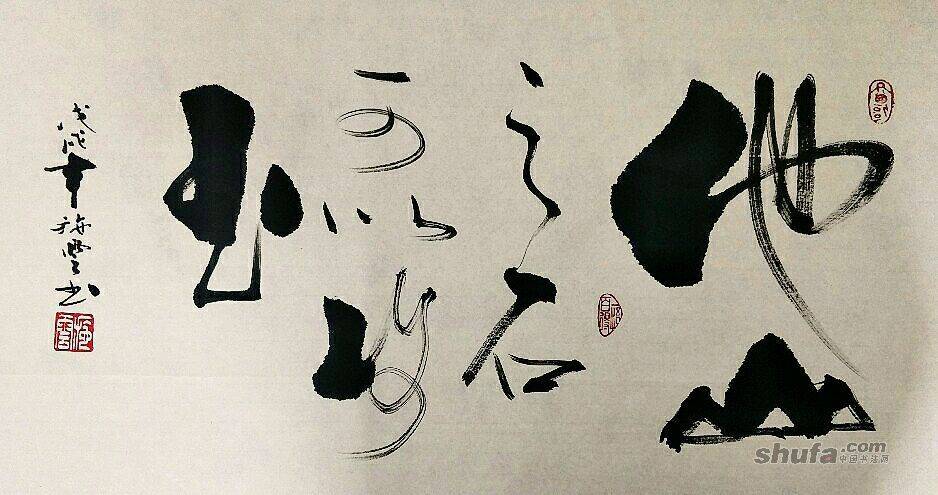 他山
之石
可以攻
玉
戊戌年 海云书
shufa.com
中国书法网